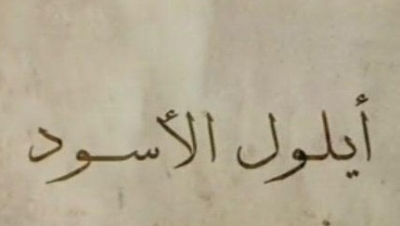 أيلول الأسود